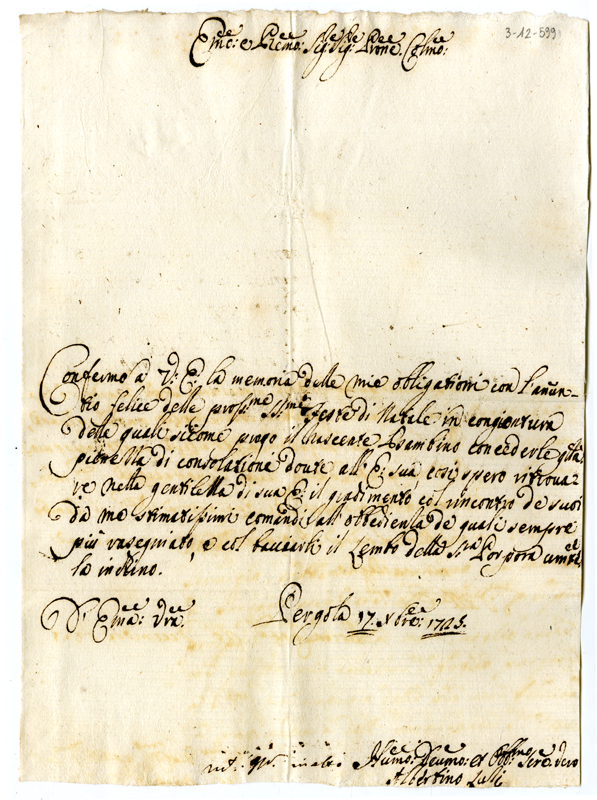 3-12-599
Emo: e Rmo: Sig: Sig: Prone. Colmo:
Confermo à V: E: la memoria delle mie obligationi con l'anun-
tio felice delle prossme Sme Feste di Natale in congiontura
delle quali sicome prego il Nascente Bambino concederle
pienezza di consolationi doute all' E: sua, così spero ritroua-
re nella gentilezza di sua E: il gradimento col incontro de suoi
da me stimatissimi comandi all' obbedienza de quali sempre
più rasegniato, e col bacciarli il Lembo della Sra Porpora
la inchino.
D: V: Ema: Vra: Pergola 17. Xbre: 1725.
Humo: Deumo: et Obbmo Sere. vero
Albertino Lulli